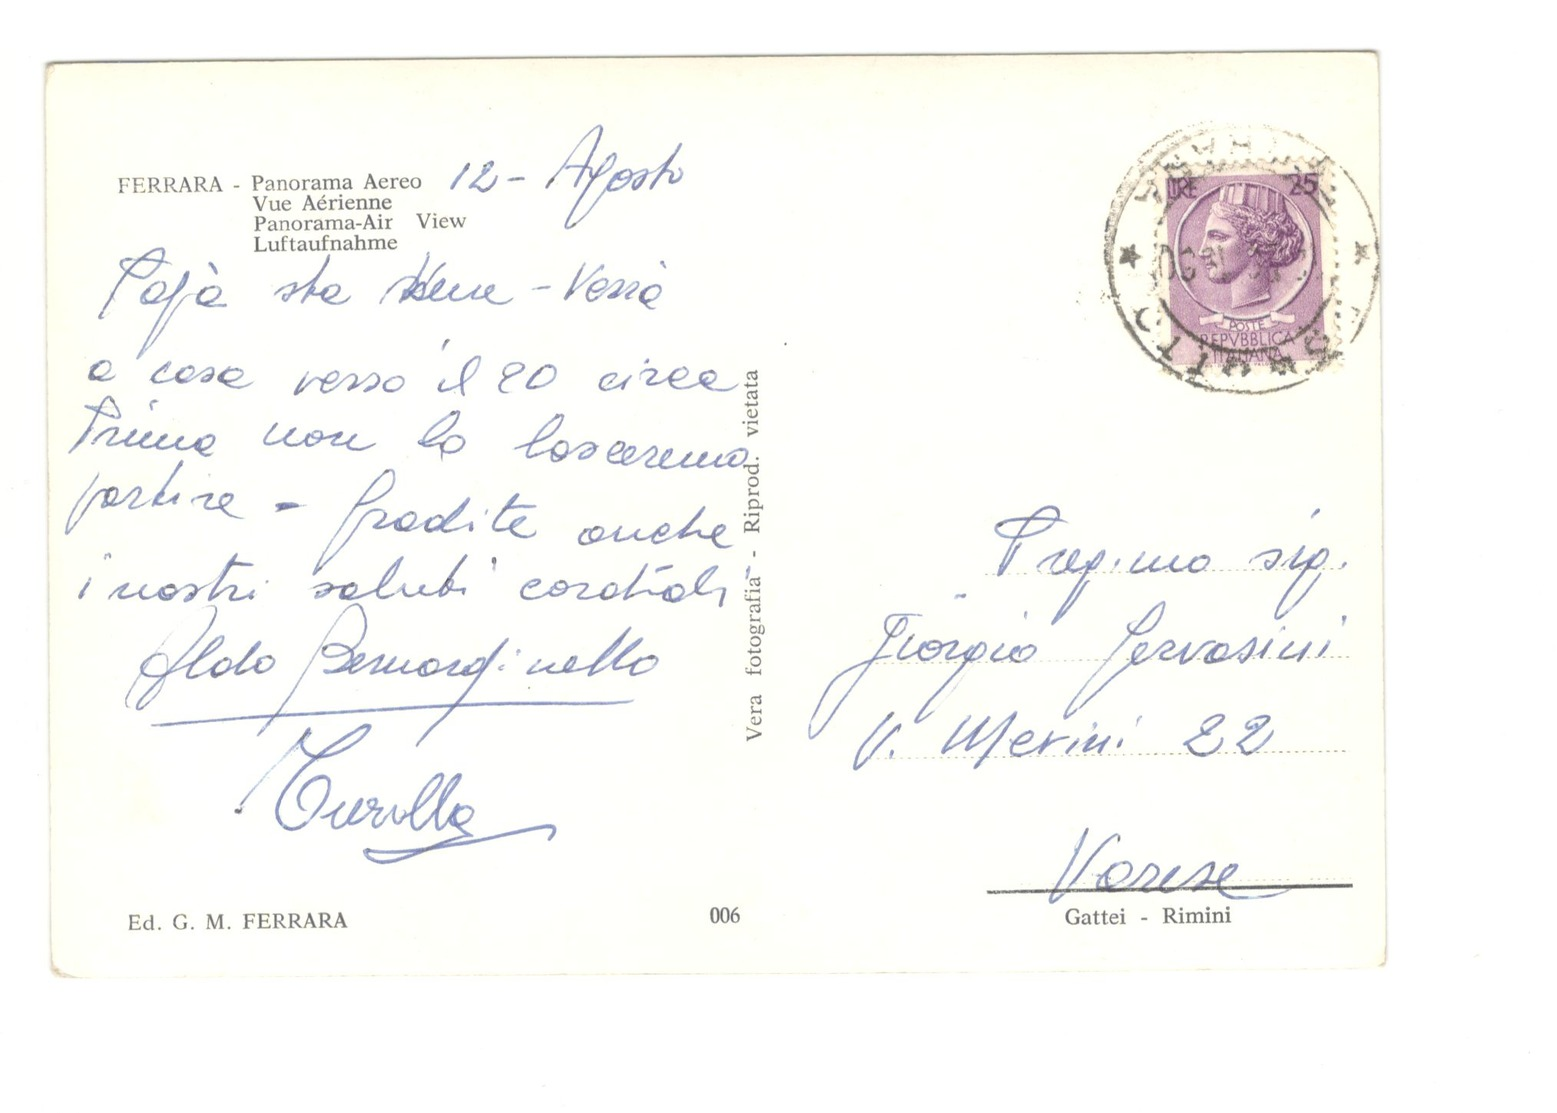 FERRARA - Panorama Aereo
Vue Aérienne
Panorama-Air View
Luftaufnahme
12 - Agosto
Papà sta bene - Verrà
a casa verso il 20 circa
Prima non lo lasceremo
partire - Gradite anche
i nostri saluti cordiali
Aldo Bernardinello
Turolla
Ed. G. M. FERRARA
006
Vera fotografia - Riprod. vietata
LIRE 25
POSTE
REPVBBLICA
ITALIANA
Preg.mo sig.
Giorgio Gervasini
V. Merini 22
Varese
Gattei - Rimini